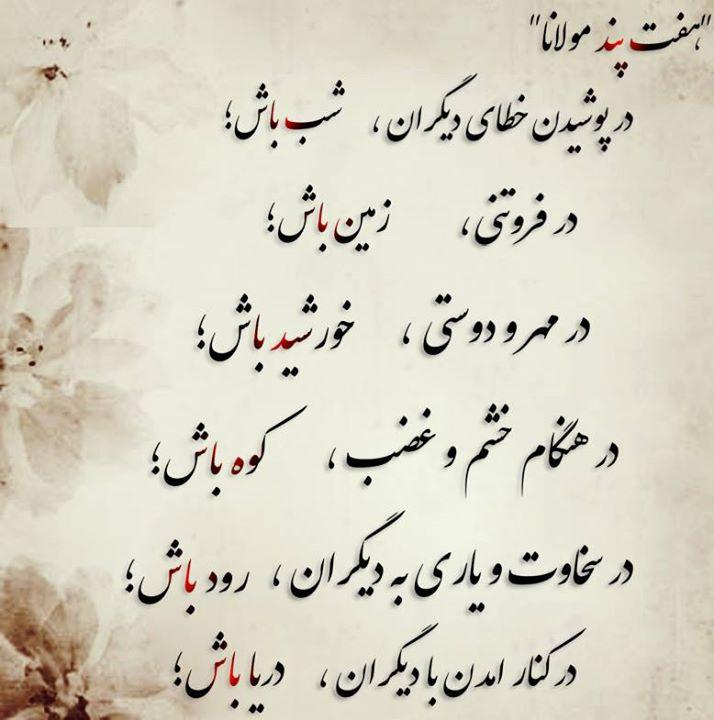 "هفت پند مولانا"
در پوشیدن خطای دیگران ، شب باش؛
در فروتنی، زمین باش؛
در مهر و دوستی ، خورشید باش؛
در هنگام خشم و غضب ، کوه باش؛
در سخاوت و یاری به دیگران ، رود باش؛
در کنار امدن با دیگران ، دریا باش؛